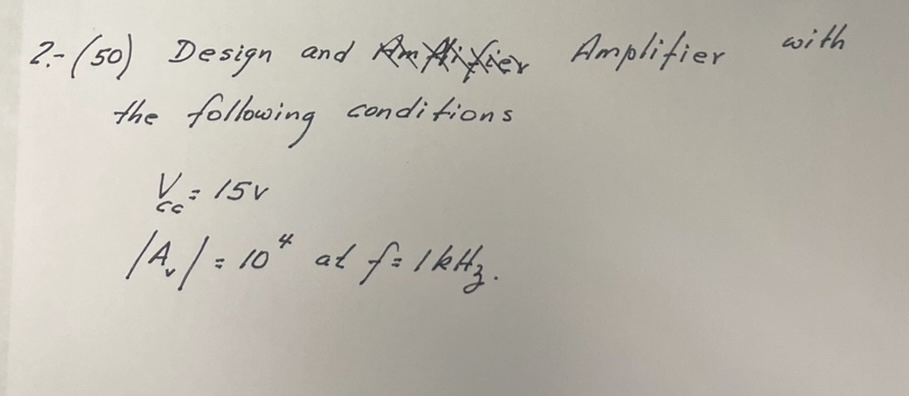 2.- (50) Design and Amplifier with
the following conditions
Vcc = 15v
|Av| = 10⁴ at f = 1kHz.